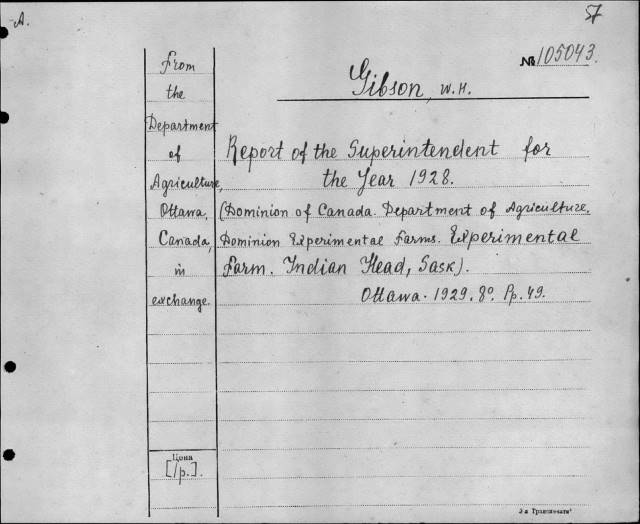 A.
57
№ 105043.
Gibson, W.H.
From
the
Department
of
Agriculture,
Ottawa,
Canada,
in
exchange.
Report of the Superintendent for
the Year 1928.
(Dominion of Canada. Department of Agriculture.
Dominion Experimental Farms. Experimental
Farm. Indian Head, Sask).
Ottawa. 1929. 8º. Pp. 49.
Цена
[1p.].